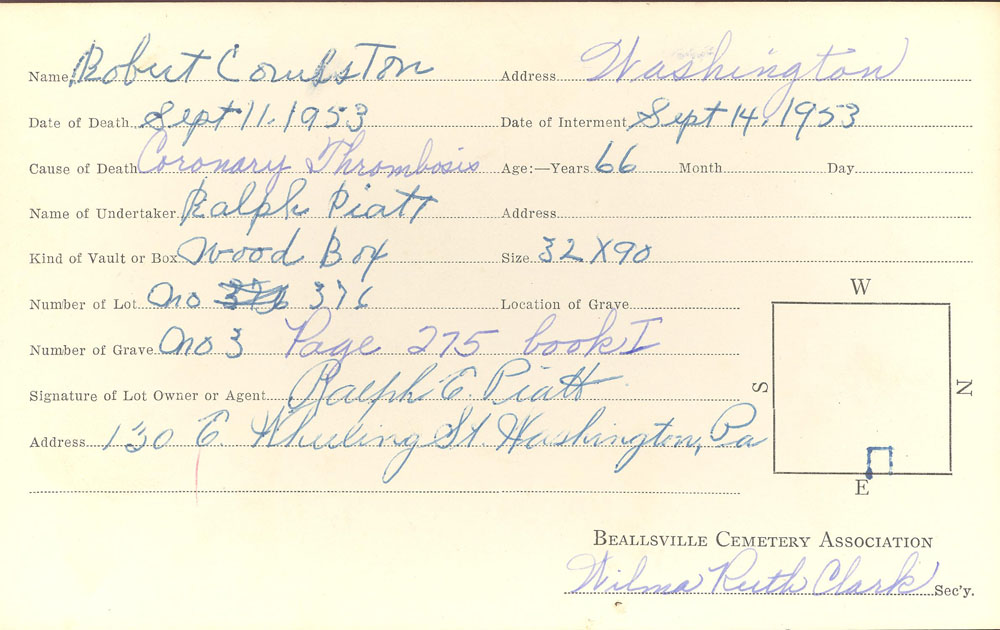 Name Robert Coulston Address Washington
Date of Death Sept 11, 1953 Date of Interment Sept 14, 1953
Cause of Death Coronary Thrombosis Age:—Years 66 Month Day
Name of Undertaker Ralph Piatt Address
Kind of Vault or Box Wood Box Size 32 X 90
Number of Lot no 376 Location of Grave
Number of Grave no 3 Page 275 book I
Signature of Lot Owner or Agent Ralph E. Piatt
Address 130 E Wheeling St. Washington, Pa
W
S N
E
Beallsville Cemetery Association
Wilma Ruth Clark Sec'y.